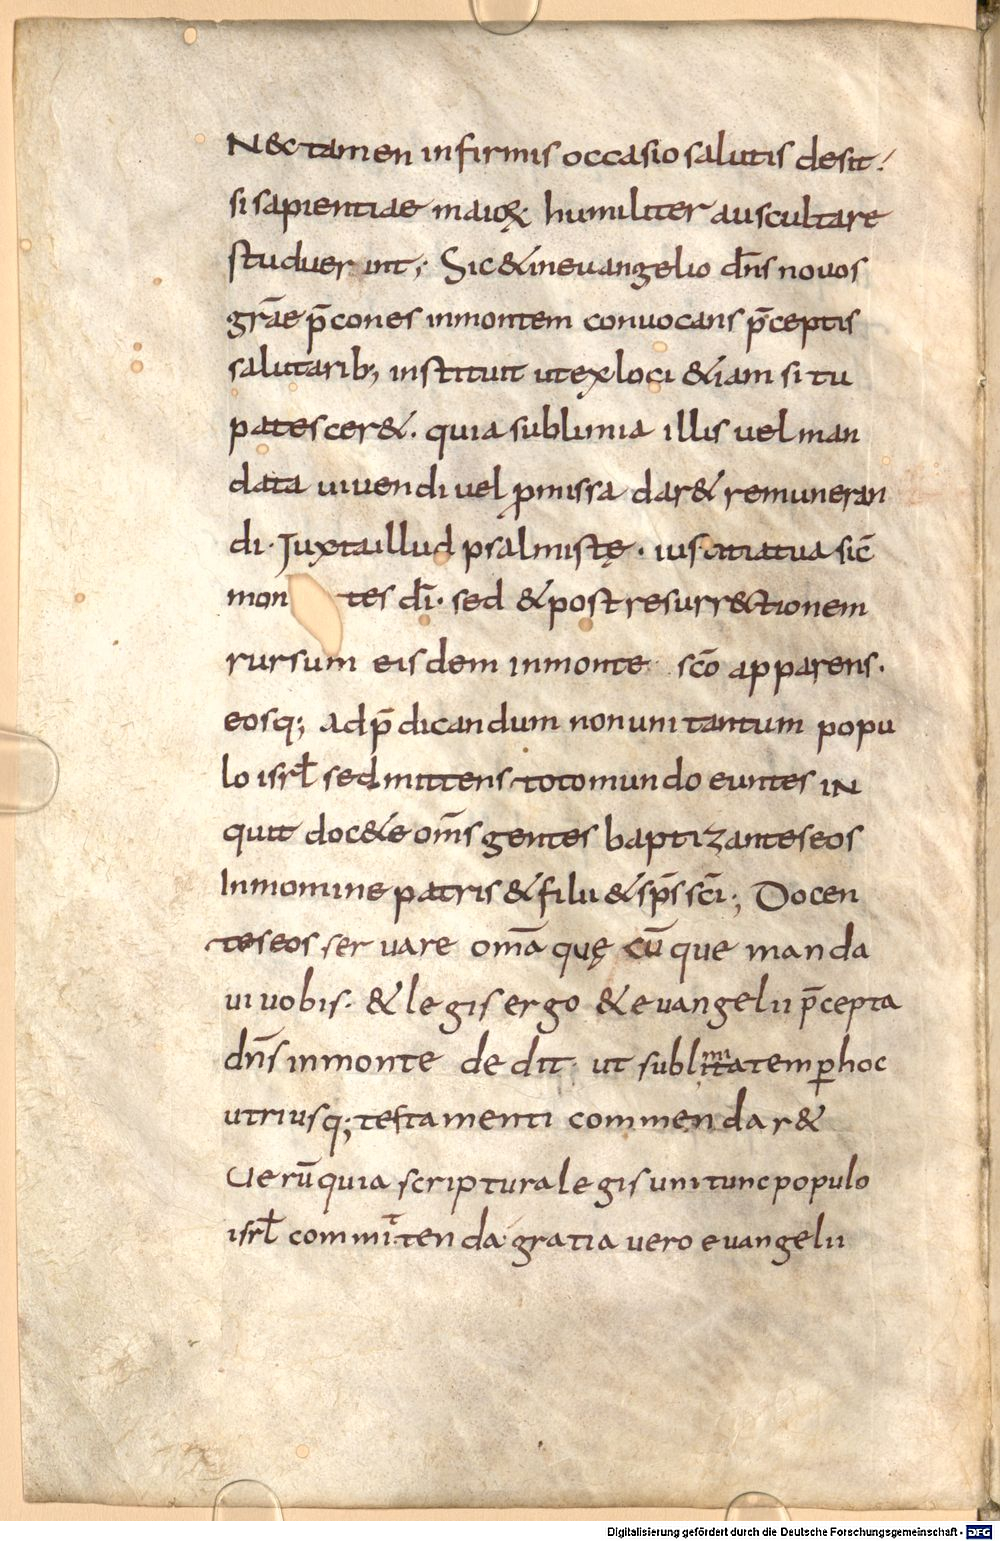 N&c tamen infirmis occasio salutis desit.
si sapientiae maioꝝ humiliter auscultare
studuer int; Sic & in evangelio dn̄s novos
grāe p̄cones inmontem convocans p̄ceptis
salutarib; instituit utex loci &iam situ
patescer&. quia sublimia illis vel man
data vivendi vel ꝓmissa dar& remuneran
di. Juxta illud psalmistę. iusatia tua sic̄
mon tes dī. sed & post resurr&tionem
rursum eisdem inmonte sc̄o apparens.
eosq; adp̄dicandum non uni tantum popu
lo isrł sed mittens toto mundo euntes IN
quit doc&e om̄s gentes baptizantes eos
Innomine patris & filii & sp̄s sc̄i; Docen
tes eos servare om̄a quę cū que manda
vi vobis. & legis ergo & evangelii p̄cepta
dn̄s inmonte dedit ut sublimitatem ꝑhoc
utriusq; testamenti commendar&
Verū quia scriptura legis uni tunc populo
isrł committenda gratia vero evangelii
Digitalisierung gefördert durch die Deutsche Forschungsgemeinschaft - DFG